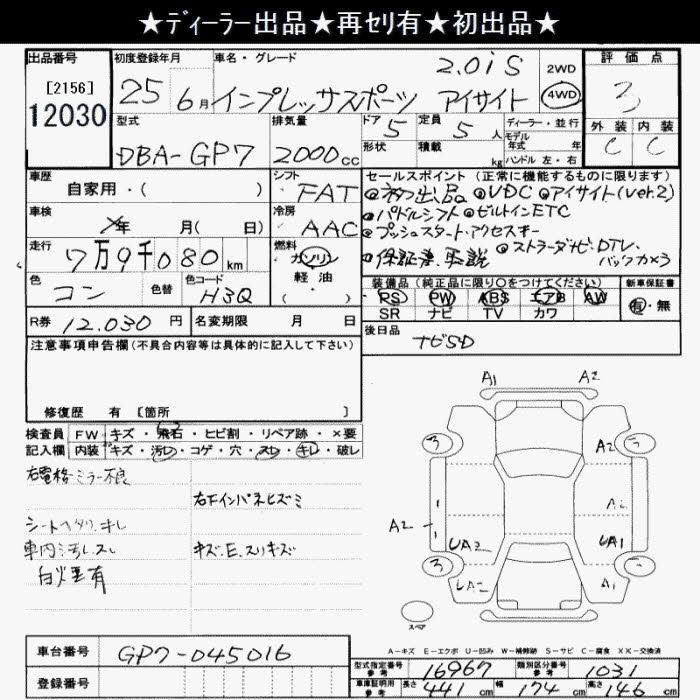 ★ディーラー出品★再セリ有★初出品★
出品番号
[2156]
12030
初度登録年月
25 6月
車名・グレード
インプレッサスポーツ
2.0i S
アイサイト
2WD
4WD
評価点
3
外装 内装
C C
型式
DBA-GP7
排気量
2000cc
ドア 5
形状
定員 5人
積載 kg
ディーラー・並行
モデル
年式 年
ハンドル 左・右
車歴
自家用・( )
シフト
FAT
車検
年 月( 日)
冷房
AAC
走行
7万9千080km
燃料
ガソリン
軽油
・( )
色
コン
色替
色コード
H3Q
R券 12.030円
名変期限 月 日
セールスポイント (正常に機能するものに限ります)
◎初出品 ◎VDC ◎アイサイト(ver.2)
◎パドルシフト ◎ビルトインETC
◎プッシュスタート.アクセスキー
◎保証書.取説
◎ストラーダナビ.DTV.
バックカメラ
装備品 (純正品に限り○をつけてください)
PS PW ABS エアB AW
SR ナビ TV カワ
新車保証書
有・無
後日品
ナビSD
注意事項申告欄 (不具合内容等は具体的に記入して下さい)
修復歴 有 [箇所 ]
検査員 FW キズ・飛石・ヒビ割・リペア跡・×要
記入欄 内装 キズ・汚レ・コゲ・穴・スレ・キレ・破レ
右電格ミラー不良
右下インパネヒズミ
シートヘタリ.キレ
車内汚レ.スレ
キズ.E.スリキズ
A1 A2
3 A2 5
A2
A2 UA2 UA1
3 UA2 A1 5
スペア
A-キズ E-エクボ U-凹み W-補修跡 S-サビ C-腐食 XX-交換済
車台番号 GP7-045016
登録番号
型式指定番号 参考 16967
類別区分番号 参考 1031
車庫証明用 参考 長さ 441cm 幅 174cm 高さ 146cm